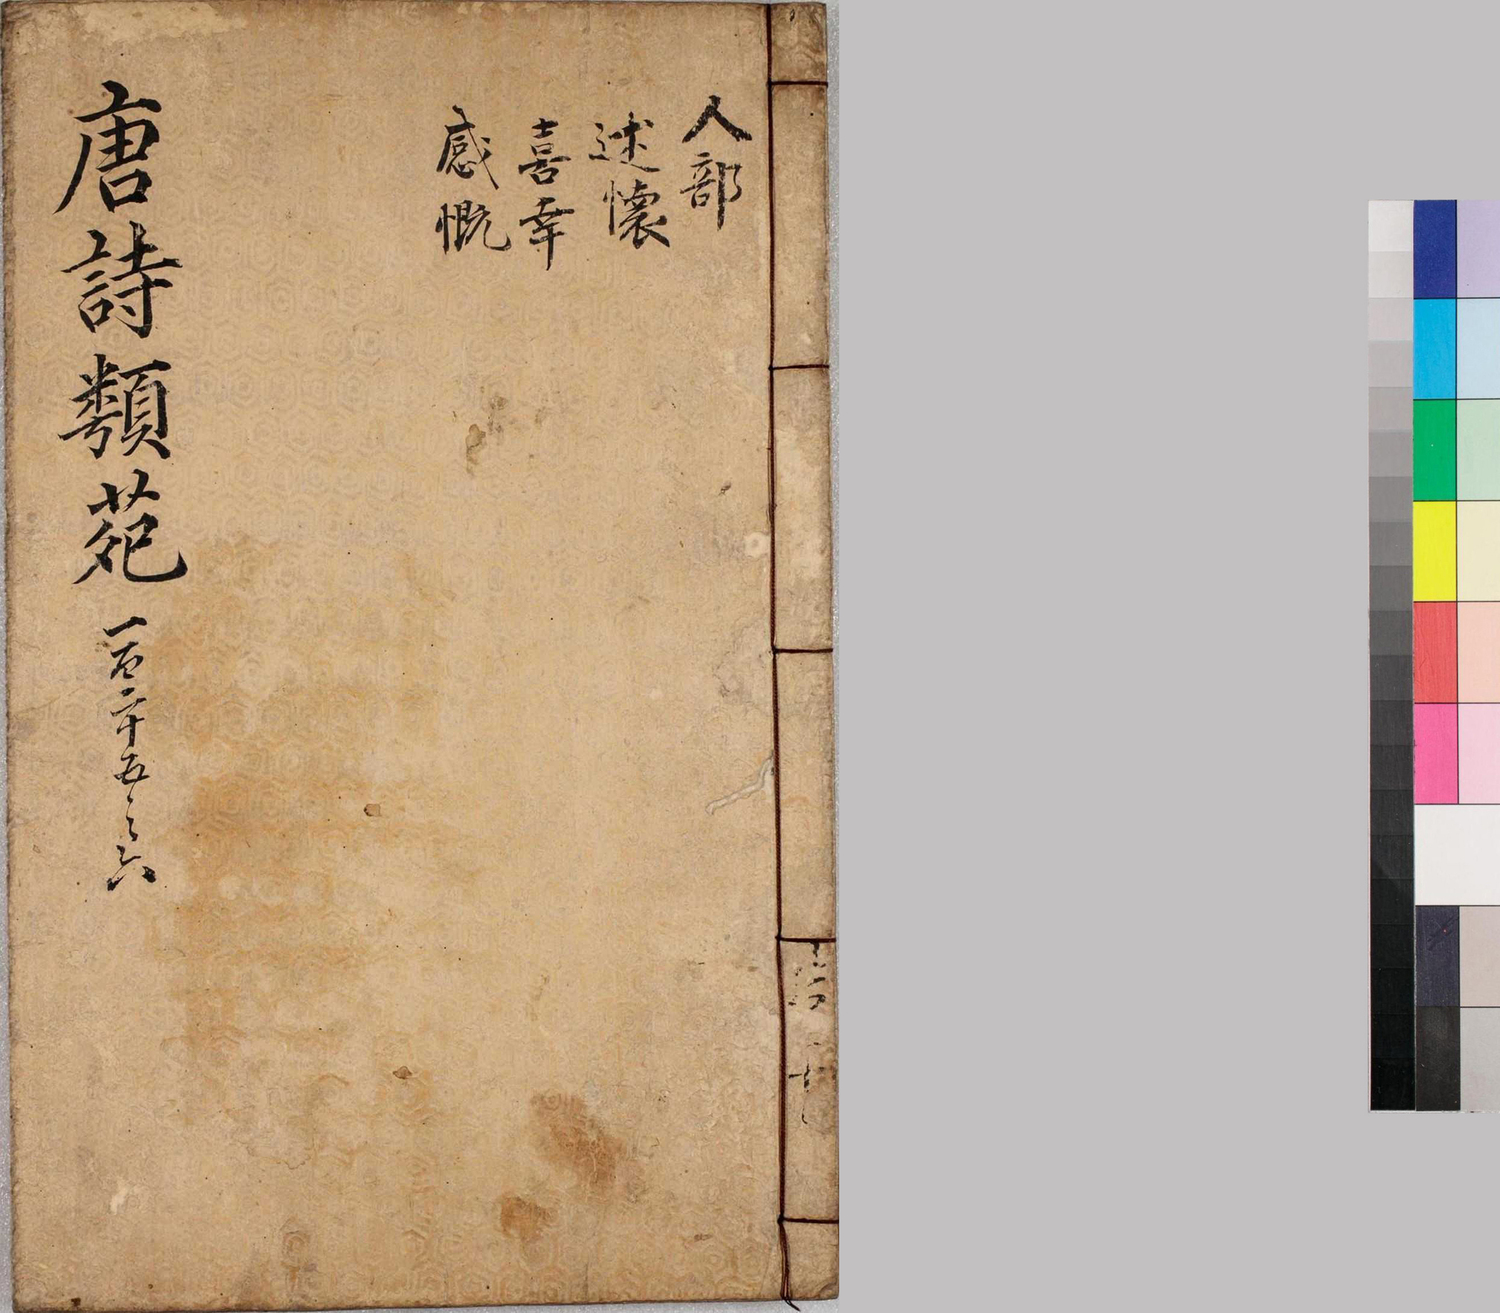 人部
述懷
喜幸
感慨
唐詩類苑 一百二十五之六